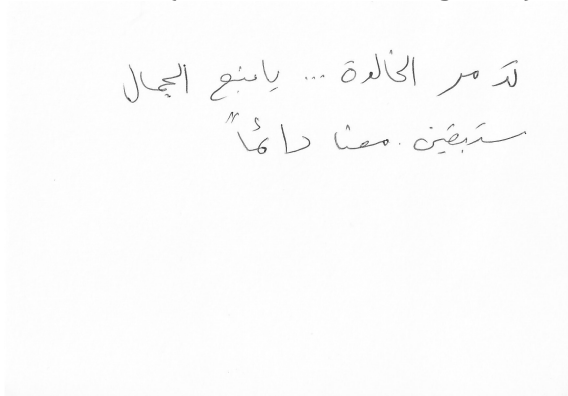 تدمر الخالدة ... يا نبع الجمال
ستبقين معنا دائماً